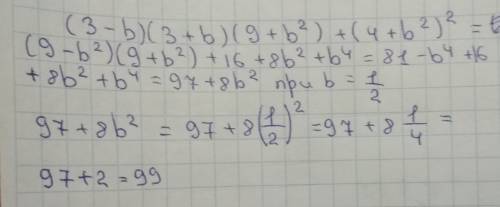 (3-b)(3+b)(9+b²)+(4+b²)²=
(9-b²)(9+b²)+16+8b²+b⁴=81-b⁴+16
+8b²+b⁴=97+8b² при b=1/2
97+8b²=97+8(1/2)²=97+8 1/4=
97+2=99